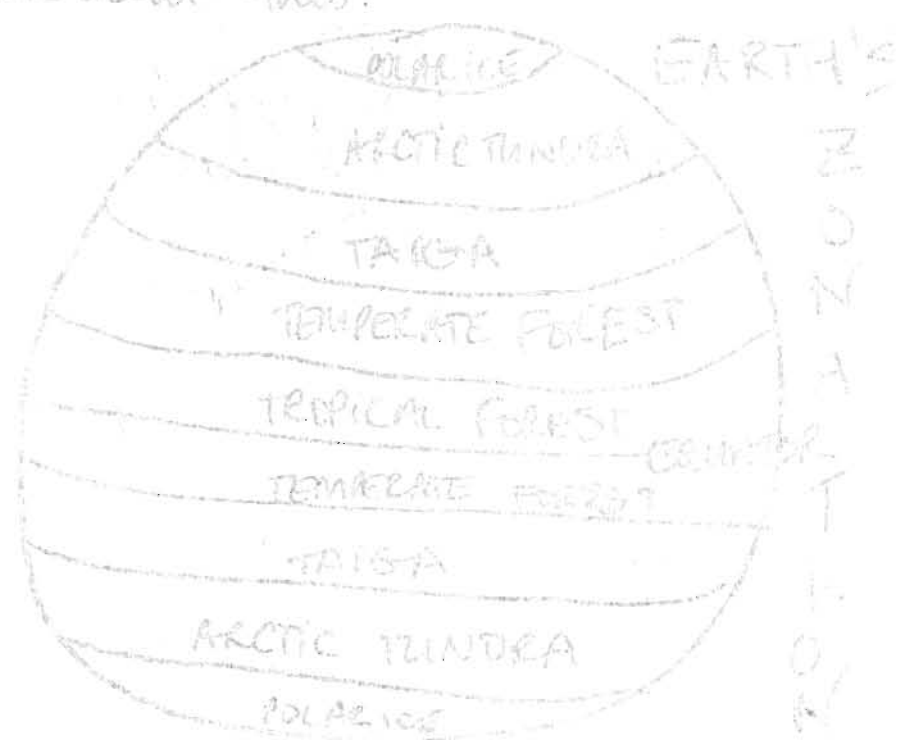 this:
POLAR ICE
EARTH'S
ARCTIC TUNDRA
TAIGA
TEMPERATE FOREST
TROPICAL FOREST
EQUATOR
TEMPERATE FOREST
TAIGA
ARCTIC TUNDRA
POLAR ICE
Z
O
N
A
T
I
O
N